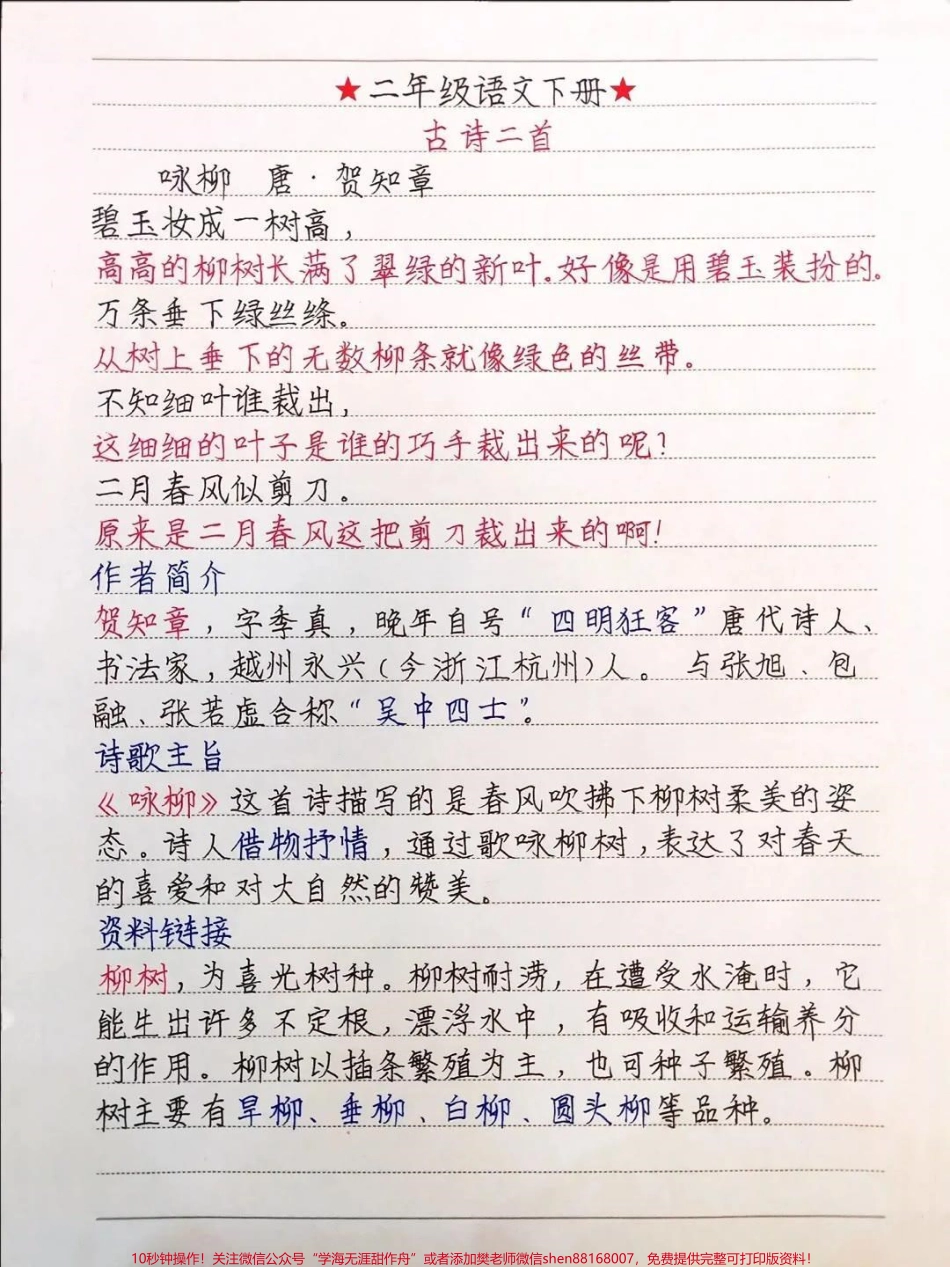 ★二年级语文下册★
古诗二首
咏柳 唐·贺知章
碧玉妆成一树高,
高高的柳树长满了翠绿的新叶。好像是用碧玉装扮的。
万条垂下绿丝绦。
从树上垂下的无数柳条就像绿色的丝带。
不知细叶谁裁出,
这细细的叶子是谁的巧手裁出来的呢?
二月春风似剪刀。
原来是二月春风这把剪刀裁出来的啊!
作者简介
贺知章,字季真,晚年自号“四明狂客”唐代诗人、
书法家,越州永兴(今浙江杭州)人。 与张旭、包
融、张若虚合称“吴中四士”。
诗歌主旨
《咏柳》这首诗描写的是春风吹拂下柳树柔美的姿
态。诗人借物抒情,通过歌咏柳树,表达了对春天
的喜爱和对大自然的赞美。
资料链接
柳树,为喜光树种。柳树耐涝,在遭受水淹时,它
能生出许多不定根,漂浮水中,有吸收和运输养分
的作用。柳树以插条繁殖为主,也可种子繁殖。柳
树主要有旱柳、垂柳、白柳、圆头柳等品种。
10秒钟操作!关注微信公众号“学海无涯甜作舟”或者添加樊老师微信shen88168007,免费提供完整可打印版资料!